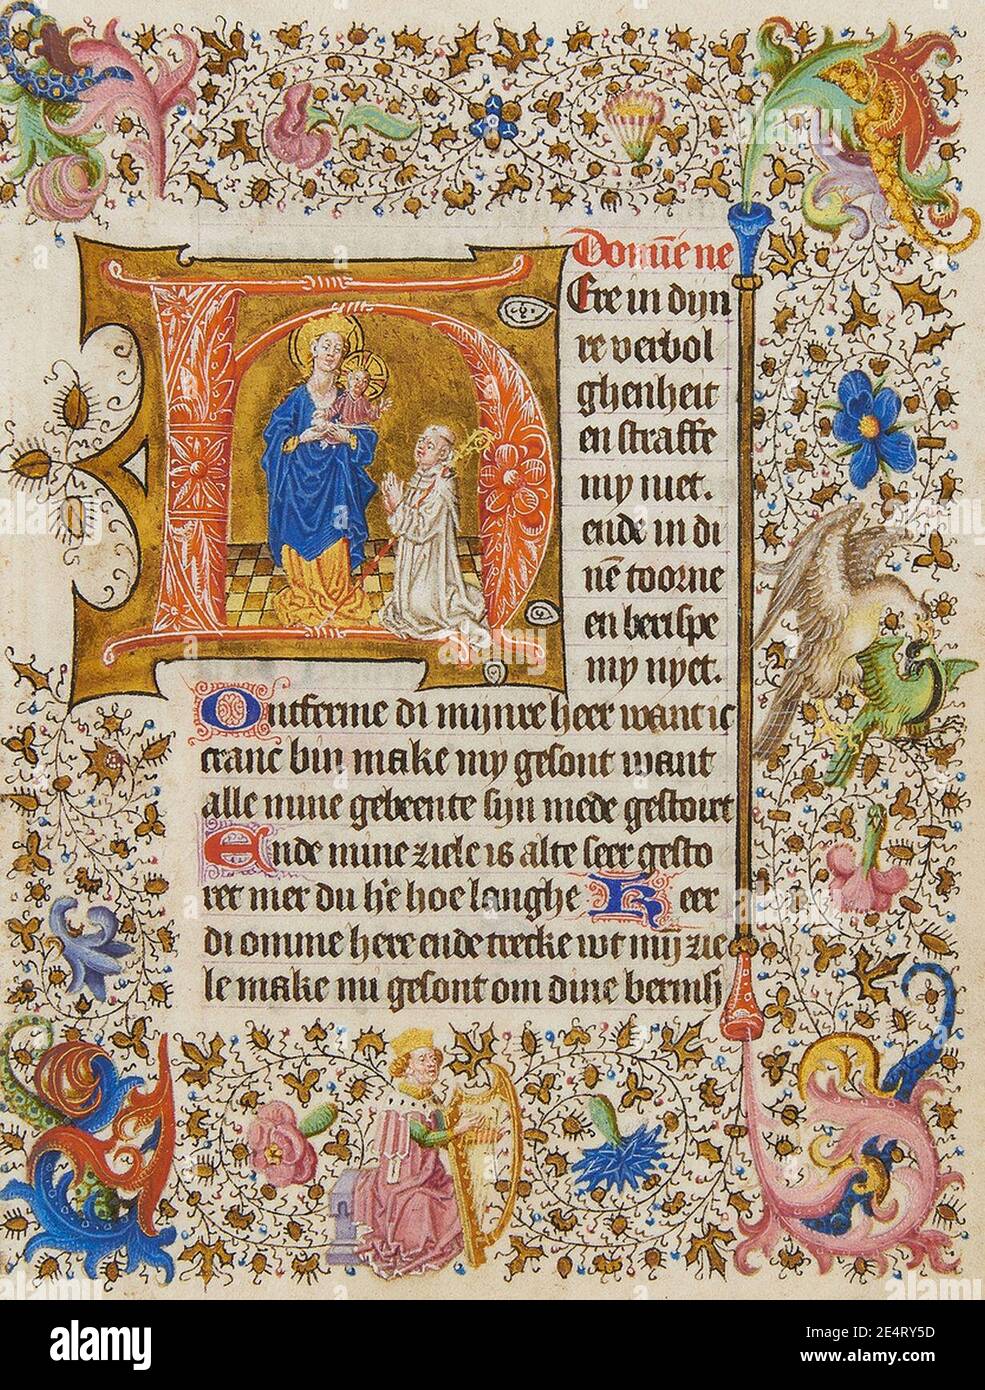 H
Domīne ne
Ere in dijn
re verbol
ghenheit
en straffe
my niet.
ende in di
nē toorne
en berispe
my nyet.
Ontferme di mijnre heer want ic
cranc bin make my gesont want
alle mine gebeente sijn mede gestoert
Ende mine ziele is alte seer gesto
ret mer du hr̄e hoe langhe Keer
di omme here ende trecke wt mijn zie
le make mi gesont om dine bermh
alamy
Image ID: 2E4RY5D
www.alamy.com